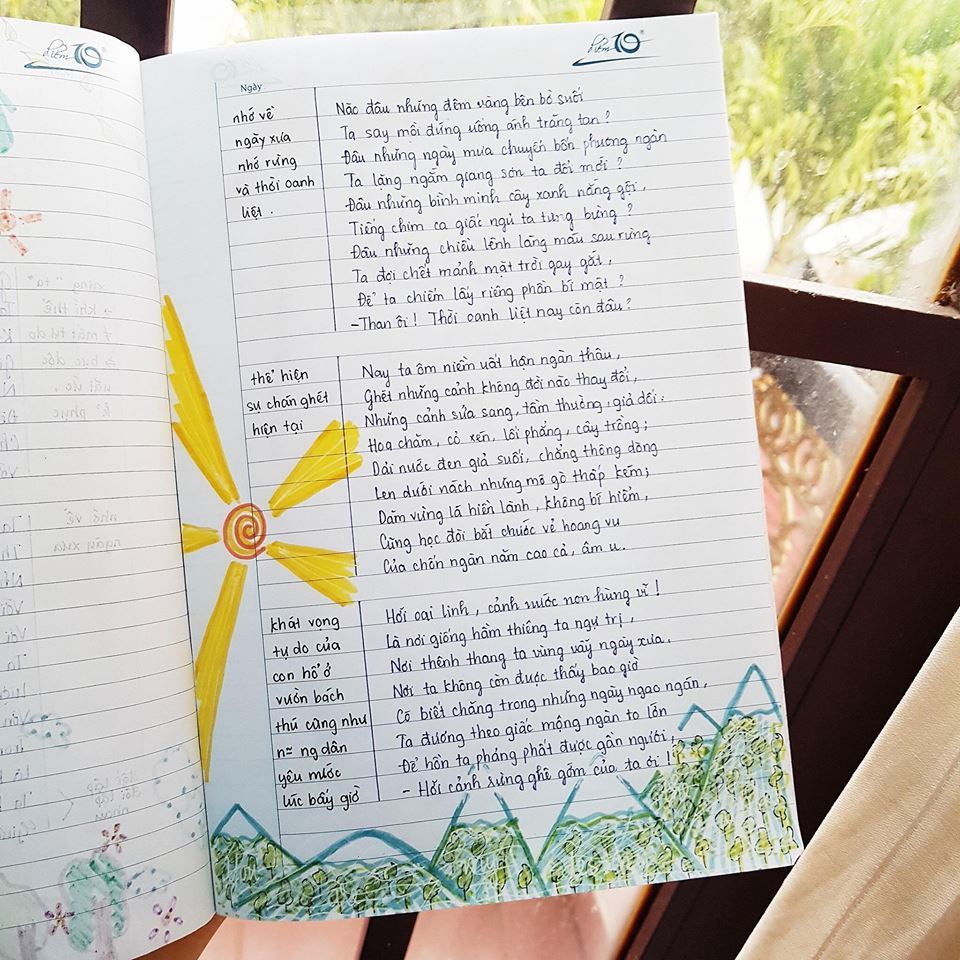 điểm 10
điểm 10
Ngày
nhớ về
ngày xưa
nhớ rừng
và thời oanh
liệt .
Nào đâu những đêm vàng bên bờ suối
Ta say mồi đứng uống ánh trăng tan ?
Đâu những ngày mưa chuyển bốn phương ngàn
Ta lặng ngắm giang sơn ta đổi mới ?
Đâu những bình minh cây xanh nắng gội ,
Tiếng chim ca giấc ngủ ta tưng bừng ?
Đâu những chiều lênh láng máu sau rừng
Ta đợi chết mảnh mặt trời gay gắt ,
Để ta chiếm lấy riêng phần bí mật ?
- Than ôi ! Thời oanh liệt nay còn đâu ?
thể hiện
sự chán ghét
hiện tại
Nay ta ôm niềm uất hận ngàn thâu ,
Ghét những cảnh không đời nào thay đổi ,
Những cảnh sửa sang , tầm thường , giả dối :
Hoa chăm , cỏ xén , lối phẳng , cây trồng ;
Dải nước đen giả suối , chẳng thông dòng
Len dưới nách những mô gò thấp kém ;
Dăm vừng lá hiền lành , không bí hiểm ,
Cũng học đòi bắt chước vẻ hoang vu
Của chốn ngàn năm cao cả , âm u .
khát vọng
tự do của
con hổ ở
vườn bách
thú cũng như
n≈ ng dân
yêu nước
lúc bấy giờ
Hỡi oai linh , cảnh nước non hùng vĩ !
Là nơi giống hầm thiêng ta ngự trị ,
Nơi thênh thang ta vùng vẫy ngày xưa .
Nơi ta không còn được thấy bao giờ
Có biết chăng trong những ngày ngao ngán ,
Ta đương theo giấc mộng ngàn to lớn
Để hồn ta phảng phất được gần ngươi ,
- Hỡi cảnh rừng ghê gớm của ta ơi !